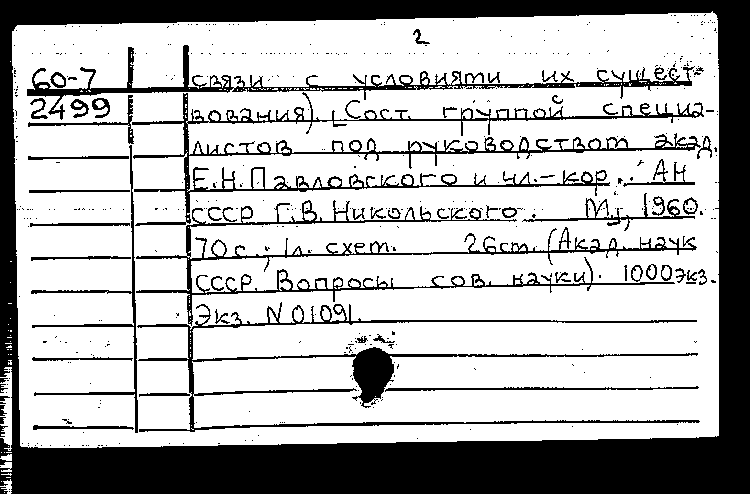 2
60-7 связи с условиями их сущест-
2499 вования). [Сост. группой специа-
листов под руководством акад.
Е.Н.Павловского и чл.-кор. АН
СССР Г.В.Никольского. М., 1960.
70с.; 1л. схем. 26см. (Акад. наук
СССР. Вопросы сов. науки). 1000экз.
Экз. N 01091.